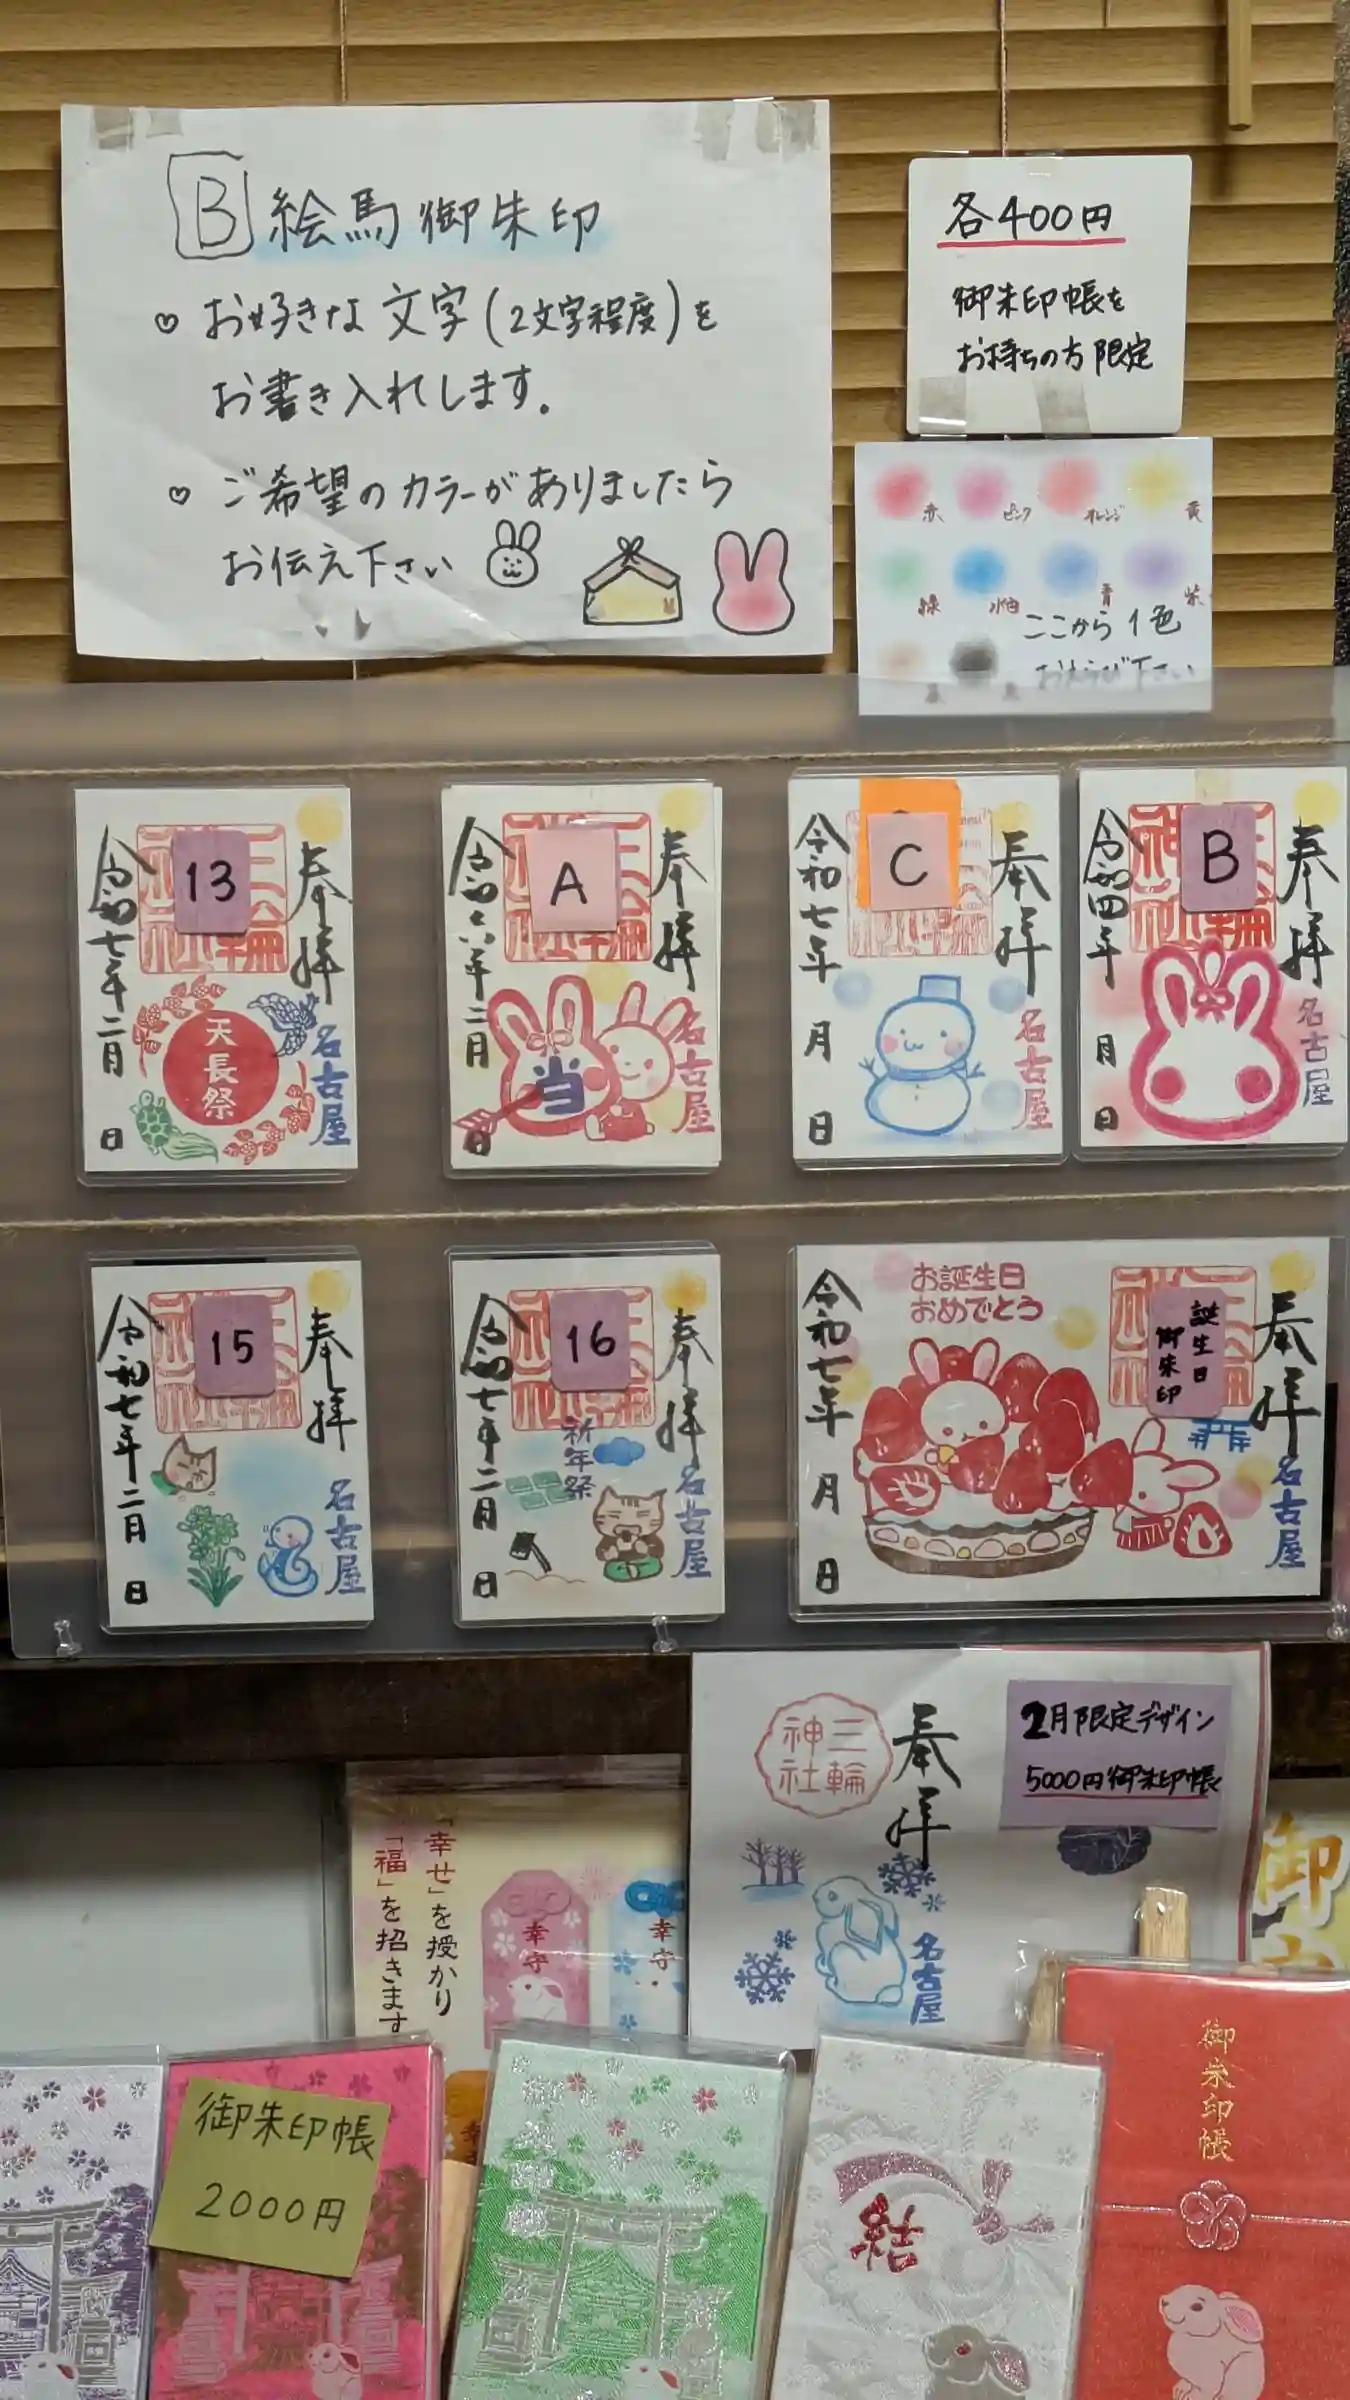 B 絵馬御朱印
♡ お好きな文字(2文字程度)を
お書き入れします。
♡ ご希望のカラーがありましたら
お伝え下さい
各400円
御朱印帳を
お持ちの方限定
赤 ピンク オレンジ 黄
緑 水色 青 紫
ここから1色
おえらび下さい
奉拝
三輪神社
13
天長祭
名古屋
令和七年二月 日
奉拝
A
当
名古屋
令和六年二月 日
奉拝
C
名古屋
令和七年 月 日
奉拝
B
名古屋
令和四年 月 日
奉拝
15
名古屋
令和七年二月 日
奉拝
16
祈年祭
名古屋
令和七年二月 日
奉拝
誕生日
御朱印
お誕生日
おめでとう
名古屋
令和七年 月 日
2月限定デザイン
5000円御朱印帳
奉拝
三輪
神社
名古屋
「幸せ」を授かり
「福」を招きます
幸守
幸守
御
御朱印帳
2000円
結
御朱印帳